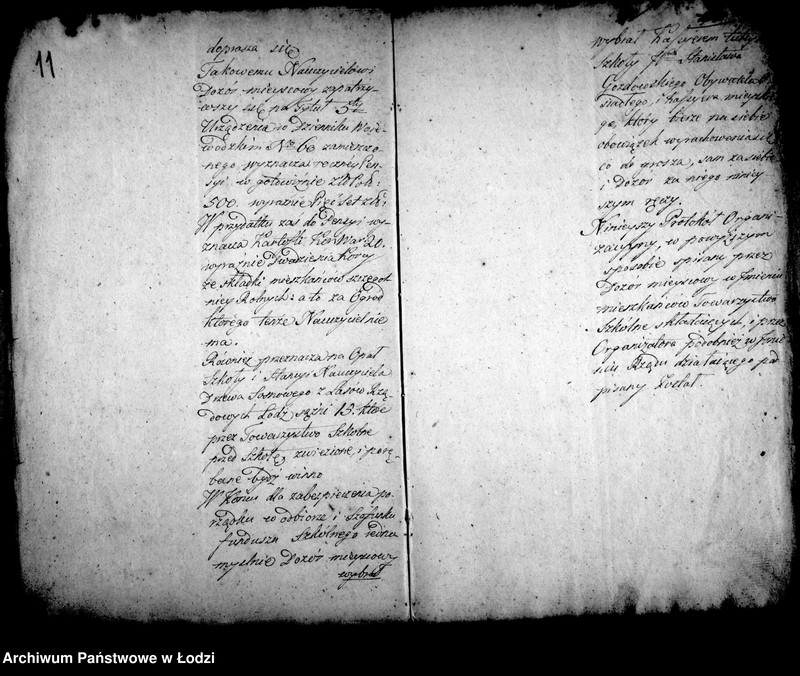 11
doprasza się
Takowemu Nauczycielowi
Dozór mieyscowy zapatrzy-
wszy się na Tytuł 5ty
Urządzenia w Dzienniku Woie-
wodzkim Nro 60 zamieszczo-
nego wyznacza rocznéy Pen-
syi w gotowiźnie złł Pol:
500. wyraźnie Pięćset złł:
W przydatku zaś do Pensyi wy-
znacza Kartofli Kor War 20.
wyraźnie Dwadzieścia Korcy
ze składki mieszkańców szczegól
niey Rolnych: a to za Ogród
którego tenże Nauczyciel nie
ma.
Również przeznacza na Opał
Szkoły i Stancyi Nauczyciela
Drzewa Sosnowego z Lasów Rzą-
dowych Łódź sążni 13. które
przez Towarzystwo Szkolne
przed Szkołę, zwiezione, i porę-
bane bydź winno
W Końcu dla zabezpieczenia po-
rządku w odbiorze i Szafunku
funduszu Szkolnego iedno
myślnie Dozór mieyscowy
wybrał
wybrał Kassyerem
Szkoły Stanisława
Gozdowskiego Obywatela
siadłego i Kassyera mieysk
go, który bierze na siebie
obowiązek wyrachowania się
co do grosza, sam za siebie
i Dozór za niego ninie
szym ręczy.
Ninieyszy Protokół Organi-
zacyiny, w powyższym
sposobie spisany przez
Dozór mieyscowy w Imieniu
mieszkańców Towarzystwo
Szkolne składaiących, i przez
Organizatora podobnież w Imie
niu Rządu działaiącego pod
pisany został.
Archiwum Państwowe w Łodzi